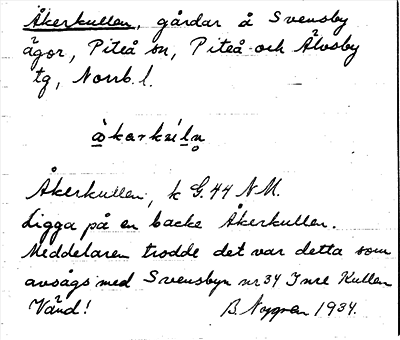 Åkerkullen, gårdar å Svensby
ägor, Piteå sn, Piteå och Älvsby
tg, Norrb. l.
Åkerkullen, k G. 44 N M.
Ligga på en backe Åkerkullen.
Meddelaren trodde det var detta som
avsågs med Svensbyn nr 34 Inre Kullen
Vänd! B. Nygren 1934.